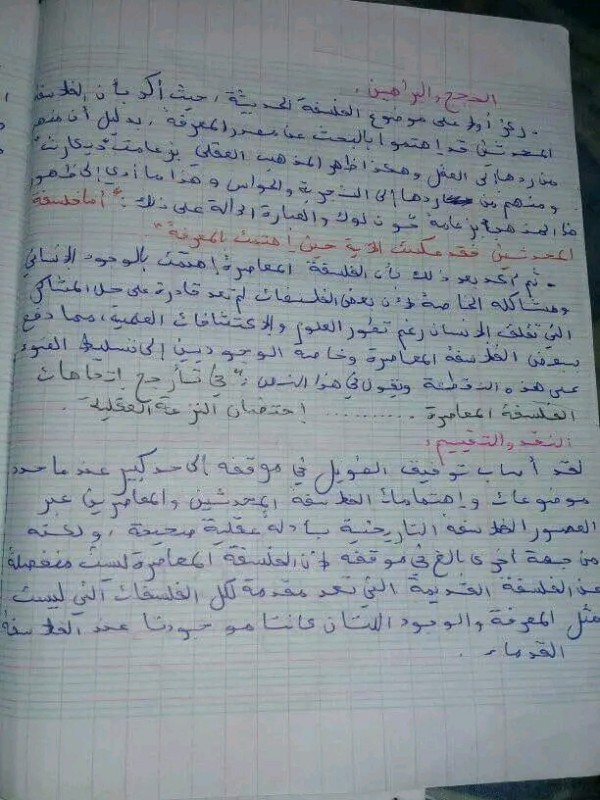 الحجج والبراهين :
- ركز أولا على موضوع الفلسفة الحديثة ، حيث أكد بأن الفلاسفة
المحدثين قد اهتموا بالبحث عن مصدر المعرفة ، بدليل أن منهم
من ردها إلى العقل وهكذا ظهر المذهب العقلي بزعامة "ديكارت"
ومنهم من ردها إلى التجربة والحواس وهذا ما أدى إلى ظهور
هذا المذهب بزعامة جون لوك والعبارة الدالة على ذلك : "أما فلسفة
المحدثين فقد مكنت حين اهتمت المعرفة"
- ثم أكد بعد ذلك بأن الفلسفة المعاصرة اهتمت بالوجود الإنساني
ومشاكله الخاصة لأن بعض الفلسفات لم تعد قادرة على حل المشاكل
التي تخلف الإنسان رغم تطور العلوم والاكتشافات العلمية، مما دفع
ببعض الفلاسفة المعاصرة وخاصة الوجوديين إلى تسليط الضوء
على هذه النقطة ويقول في هذا الشأن : "في تأرجح اتجاهات
الفلسفة المعاصرة .......... احتضان النزعة العقلية .
النقد والتقييم :
لقد أصاب توفيق الطويل في موقفه إلى حد كبير عندما حدد
موضوعات واهتمامات الفلاسفة المحدثين والمعاصرين عبر
العصور الفلاسفة التاريخية بأدلة عقلية صحيحة ، ولكنه
من جهة أخرى بالغ في موقفه لأن الفلسفة المعاصرة ليست منفصلة
عن الفلسفة القديمة التي تعد مقدمة لكل الفلسفات التي ليست
مثل المعرفة والوجود اللتان كانتا موجودتا عند الفلاسفة
القدماء .